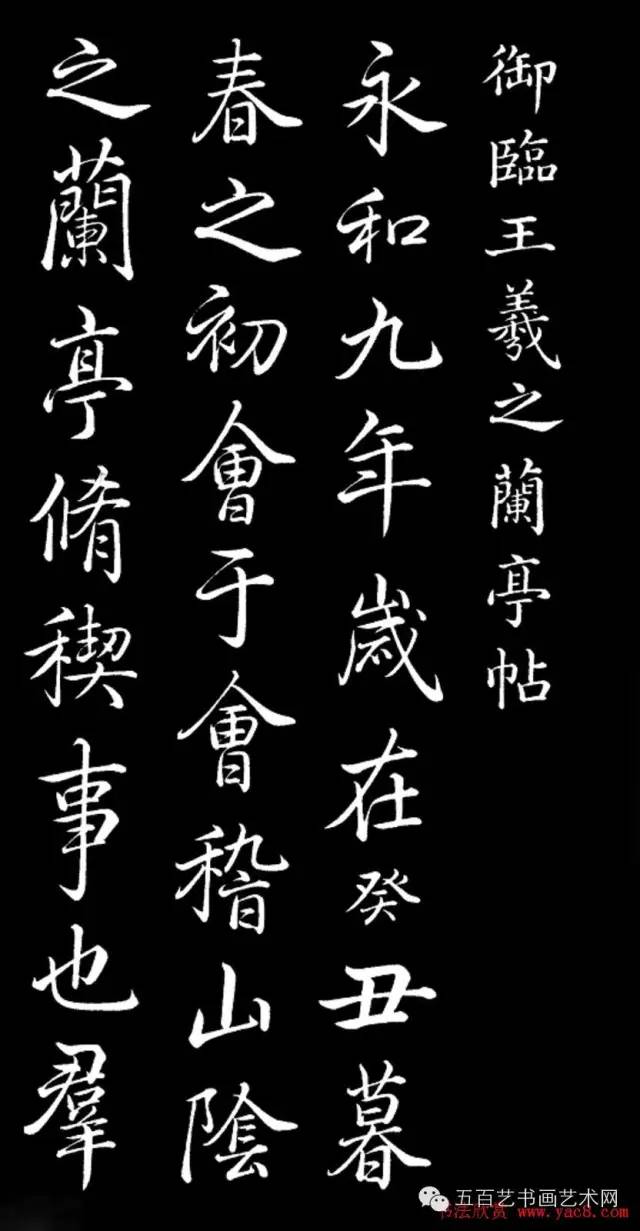 御臨王羲之蘭亭帖
永和九年歲在癸丑暮
春之初會于會稽山陰
之蘭亭脩稧事也羣
五百艺书画艺术网
书法欣赏 www.yac8.com